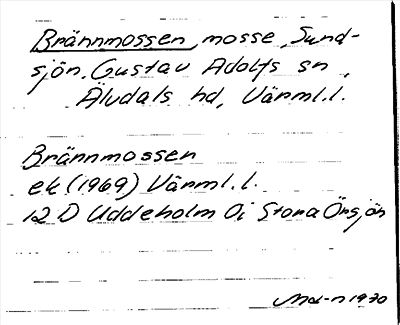 Brännmossen, mosse, Sund-
sjön, Gustav Adolfs sn,
Älvdals hd, Värml.l.
Brännmossen
ek (1969) Värml.l.
12 D Uddeholm 0i Stora Örsjön
1970